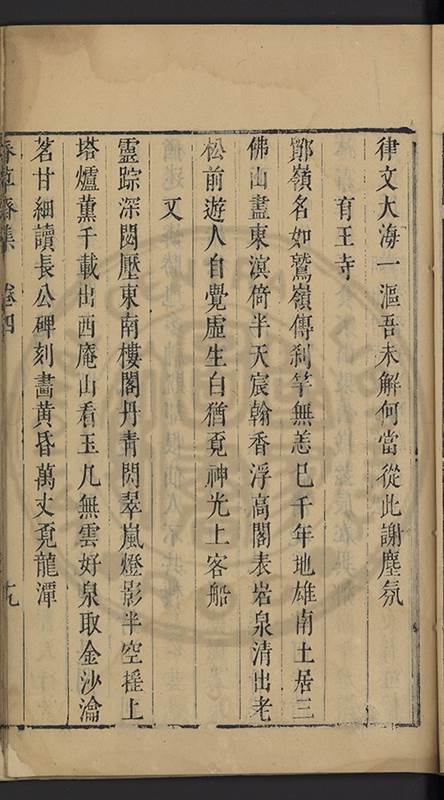 律文大海一漚吾未解何當從此謝塵氛
育王寺
鄮嶺名如鷲嶺傳刹竿無恙已千年地雄南土居三
佛山盡東溟倚半天宸翰香浮高閣表岩泉清出老
松前遊人自覺虛生白猶覓神光上客船
又
靈踪深閟壓東南樓閣丹青閃翠嵐燈影半空摇上
塔爐薰千載出西庵山看玉几無雲好泉取金沙瀹
茗甘細讀長公碑刻畫黃昏萬丈覓龍潭
集 卷四 十九